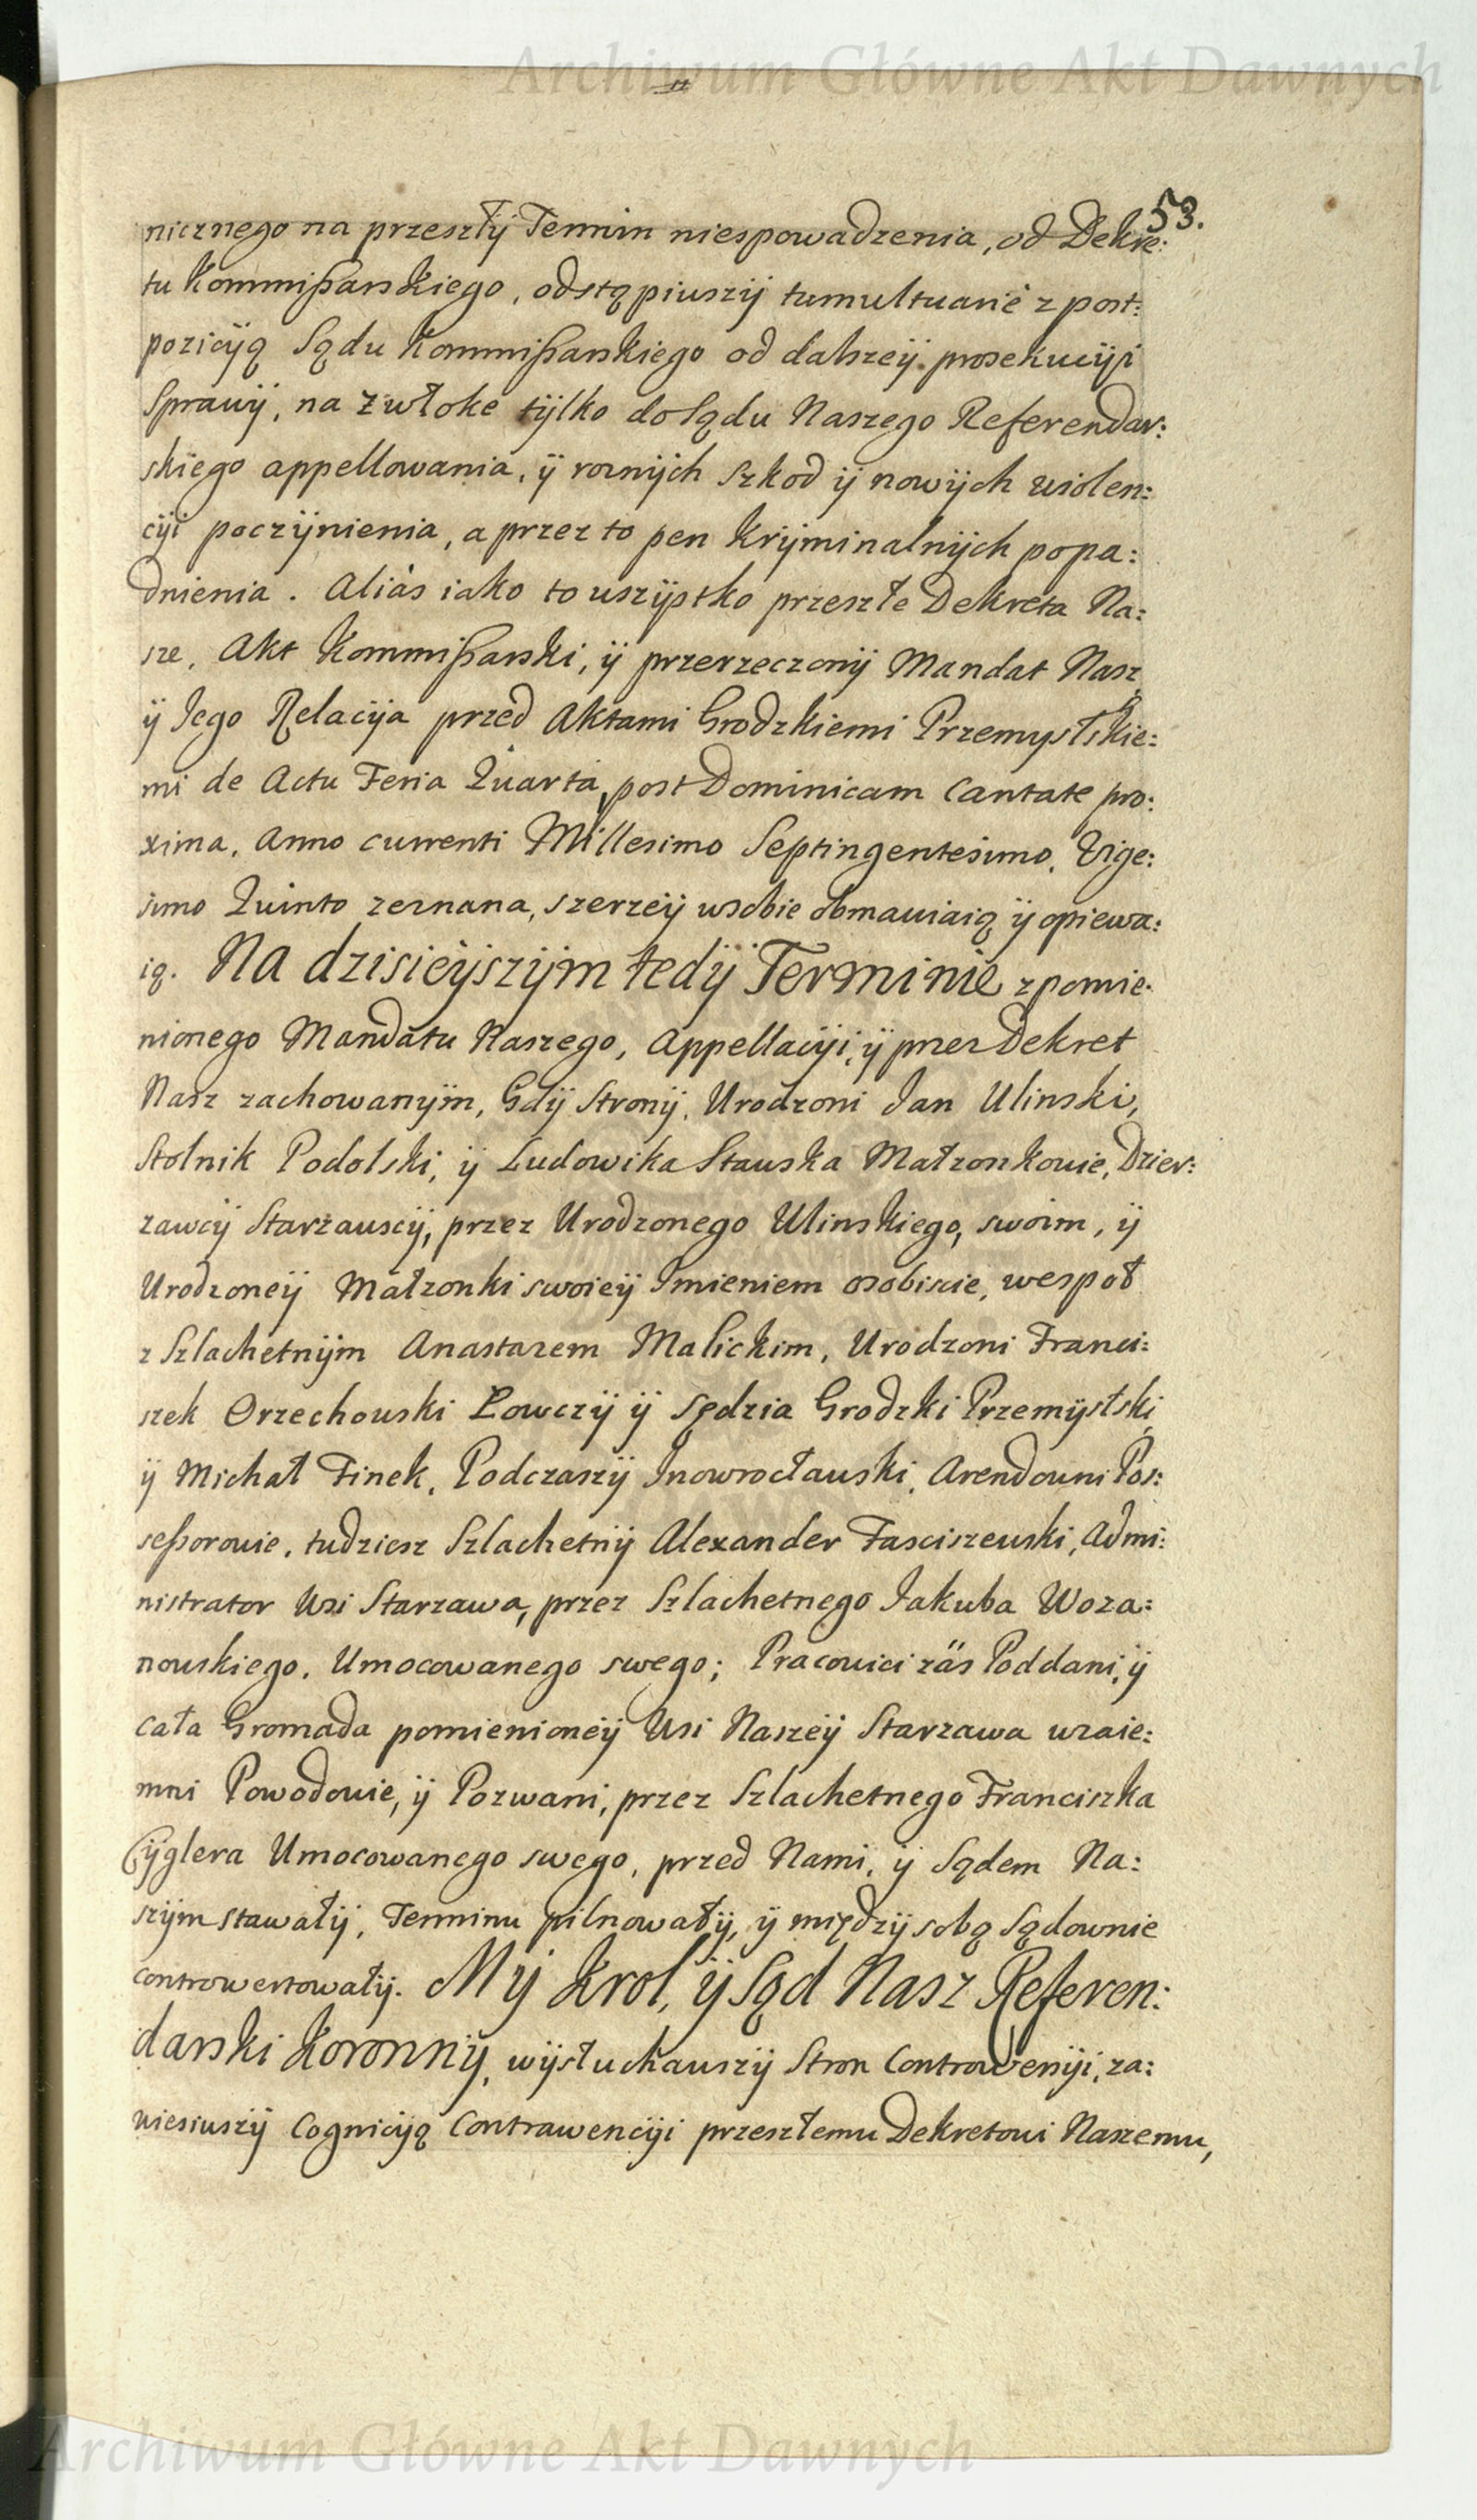 Archiwum Główne Akt Dawnych
53.
nicznego na przeszłÿ Termin niespowadzenia, od Dekre:
tu Kommißarskiego, odstąpiuszÿ tumultuariè z post:
pozicÿą Sądu Kommißarskiego od dalszeÿ prosekucÿi
Sprawÿ, na zwłoke tÿlko do Sądu Naszego Referendar:
skiego appellowania, ÿ roznÿch szkod ÿ nowÿch violen:
cÿi poczÿnienia, a przez to pen Krÿminalnÿch popa:
dnienia. Aliàs iako to uszÿstko przeszłe Dekreta Na:
sze, Akt Kommißarski, ÿ przerzeczonÿ Mandat Nasz
ÿ Jego Relacÿa przed Aktami Grodzkiemi Przemyślskie:
mi de Actu Feria Quarta, post Dominicam Cantate pro:
xima, Anno currenti Millesimo Septingentesimo, Vige:
simo Quinto zeznana, szerzeÿ w sobie obmawiaią ÿ opiewa:
ią. Na dzisieÿszÿm tedÿ Terminie z pomie:
nionego Mandatu Naszego, Appellacÿi, ÿ przez Dekret
Nasz zachowanÿm, Gdÿ Stronÿ, Urodzoni Jan Ulinski,
Stolnik Podolski, ÿ Ludowika Stauska Małzonkowie, Dzier:
zawcÿ Starzauscÿ, przez Urodzonego Ulinskiego, swoim, ÿ
Urodzoneÿ Małzonki swoieÿ Imieniem osobiscie, wespoł
z Szlachetnÿm Anastazem Malickim, Urodzoni Franci:
szek Orzechouski Łowczÿ ÿ Sędzia Grodzki Przemÿślski,
ÿ Michał Finek, Podczaszÿ Inowrocłauski, Arendouni Pos:
seßorowie, tudziesz Szlachetnÿ Alexander Fasciszeuski, Admi:
nistrator Wsi Starzawa, przez Szlachetnego Jakuba Woza:
nouskiego, Umocowanego swego; Pracowici zäs Poddani, ÿ
cała Gromada pomienioneÿ Wsi Naszeÿ Starzawa wzaie:
mni Powodowie, ÿ Pozwani, przez Szlachetnego Franciszka
Cÿglera Umocowanego swego, przed Nami, ÿ Sądem Na:
szÿm stawałÿ, Terminu pilnowałÿ, ÿ międzÿ sobą Sądownie
controwertowałÿ. Mÿ Krol, ÿ Sąd Nasz Referen:
darski Koronnÿ, wÿsłuchauszÿ Stron Controwersÿi, za:
wiesiuszÿ Cognicÿą Contrawencÿi przeszłemu Dekretowi Naszemu,
Archiwum Główne Akt Dawnych